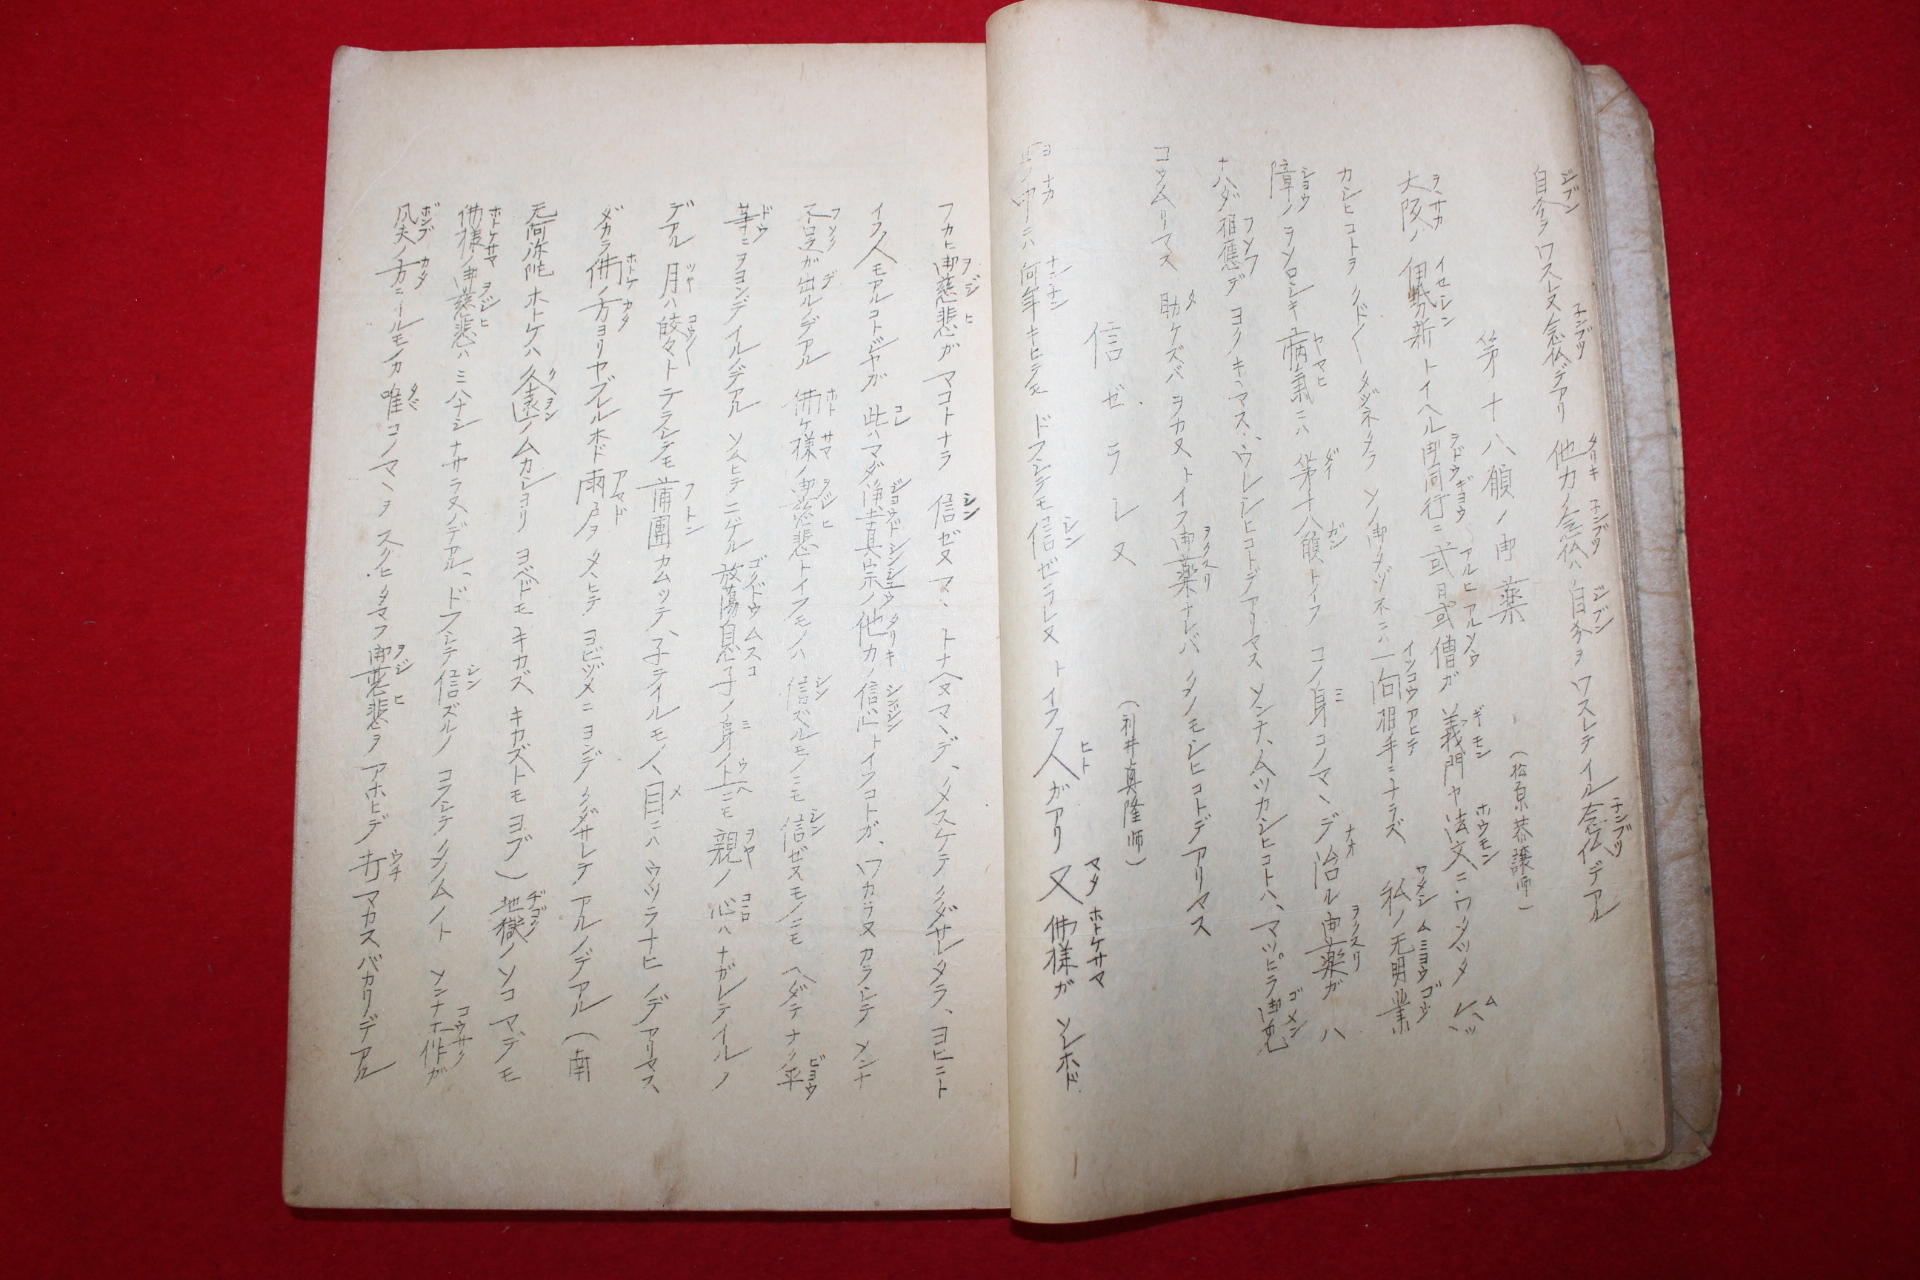 自分ヲワスレヌ念仏デアリ 他力ノ念仏ハ自分ヲワスレテイル念仏デアル
(松原恭譲師)
第十八願ノ御薬
大阪ノ伊勢新トイヘル御同行ニ或日或僧ガ義門ヤ法文ニワタツタ
カシヒコトヲクドクドタヅネタラ ソノ御タヅネニハ一向相手ニナラズ 私ノ无明業
障ノヲソロシキ病氣ニハ 第十八願トイフ コノ身コノマヽデ治ル御薬ガ ハ
ナハダ相應デヨクキヽマス、ウレシヒコトデアリマス ソンナムツカシヒコトハ、マツピラ御免
コウムリマス 助ケズバヲカヌトイフ御薬ナレバ タノモシヒコトデアリマス
(利井真隆師)
信ゼラレヌ
世ノ中ニハ何年キヒテモ ドフシテモ信ゼラレヌトイフ人ガアリ 又佛様ガソレホド
フカヒ御慈悲ガマコトナラ 信ゼヌマヽ トナヘヌマヽデ、タスケテクダサレタラ、ヨヒニト
イフ人モアルコトジヤガ 此ハマダ浄土真宗ノ他力ノ信心トイフコトガ、ワカラヌカラシテ ソンナ
不足ガ出ルノデアル 佛ケ様ノ御慈悲トイフモノハ 信ズルモノニモ信ゼヌモノニモ ヘダテナク平
等ニヲヨンデイルノデアル ソムヒテニゲル放蕩息子ノ身ノ上ニモ 親ノ心ハナガレテイルノ
デアル 月ハ皎々トテラシテモ 蒲團カムツテ、子テイルモノヽ目ニハ ウツラナヒノデアリマス、
ダカラ佛ノ方ヨリヤブレルホド雨戸タヽヒテ ヨビヅメニヨンデクダサレテアルノデアル (南
无阿弥陀ホトケハ久遠ノムカシヨリ ヨベドモキカズ キカズトモヨブ) 地獄ノソコマデモ
佛様ノ御慈悲ハミハナシナサラヌノデアル、ドフシテ信ズルノ コフシテタノムノト ソンナ工作ガ
凡夫ノ方ニイルモノカ 唯コノマヽヲスクヒタマフ御慈悲ヲアホヒデ 打マカスバカリデアル